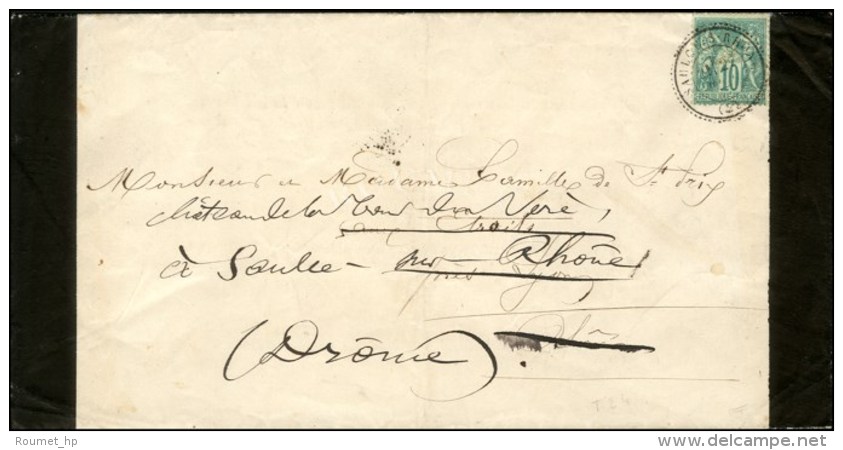 10
Monsieur et Madame Camille de St Prix
château de la Tour du Vere,
aux Etroits
à Saulce - sur Rhône
près Lyon
(Drôme)
Roumet_hp
www.delcampe.net